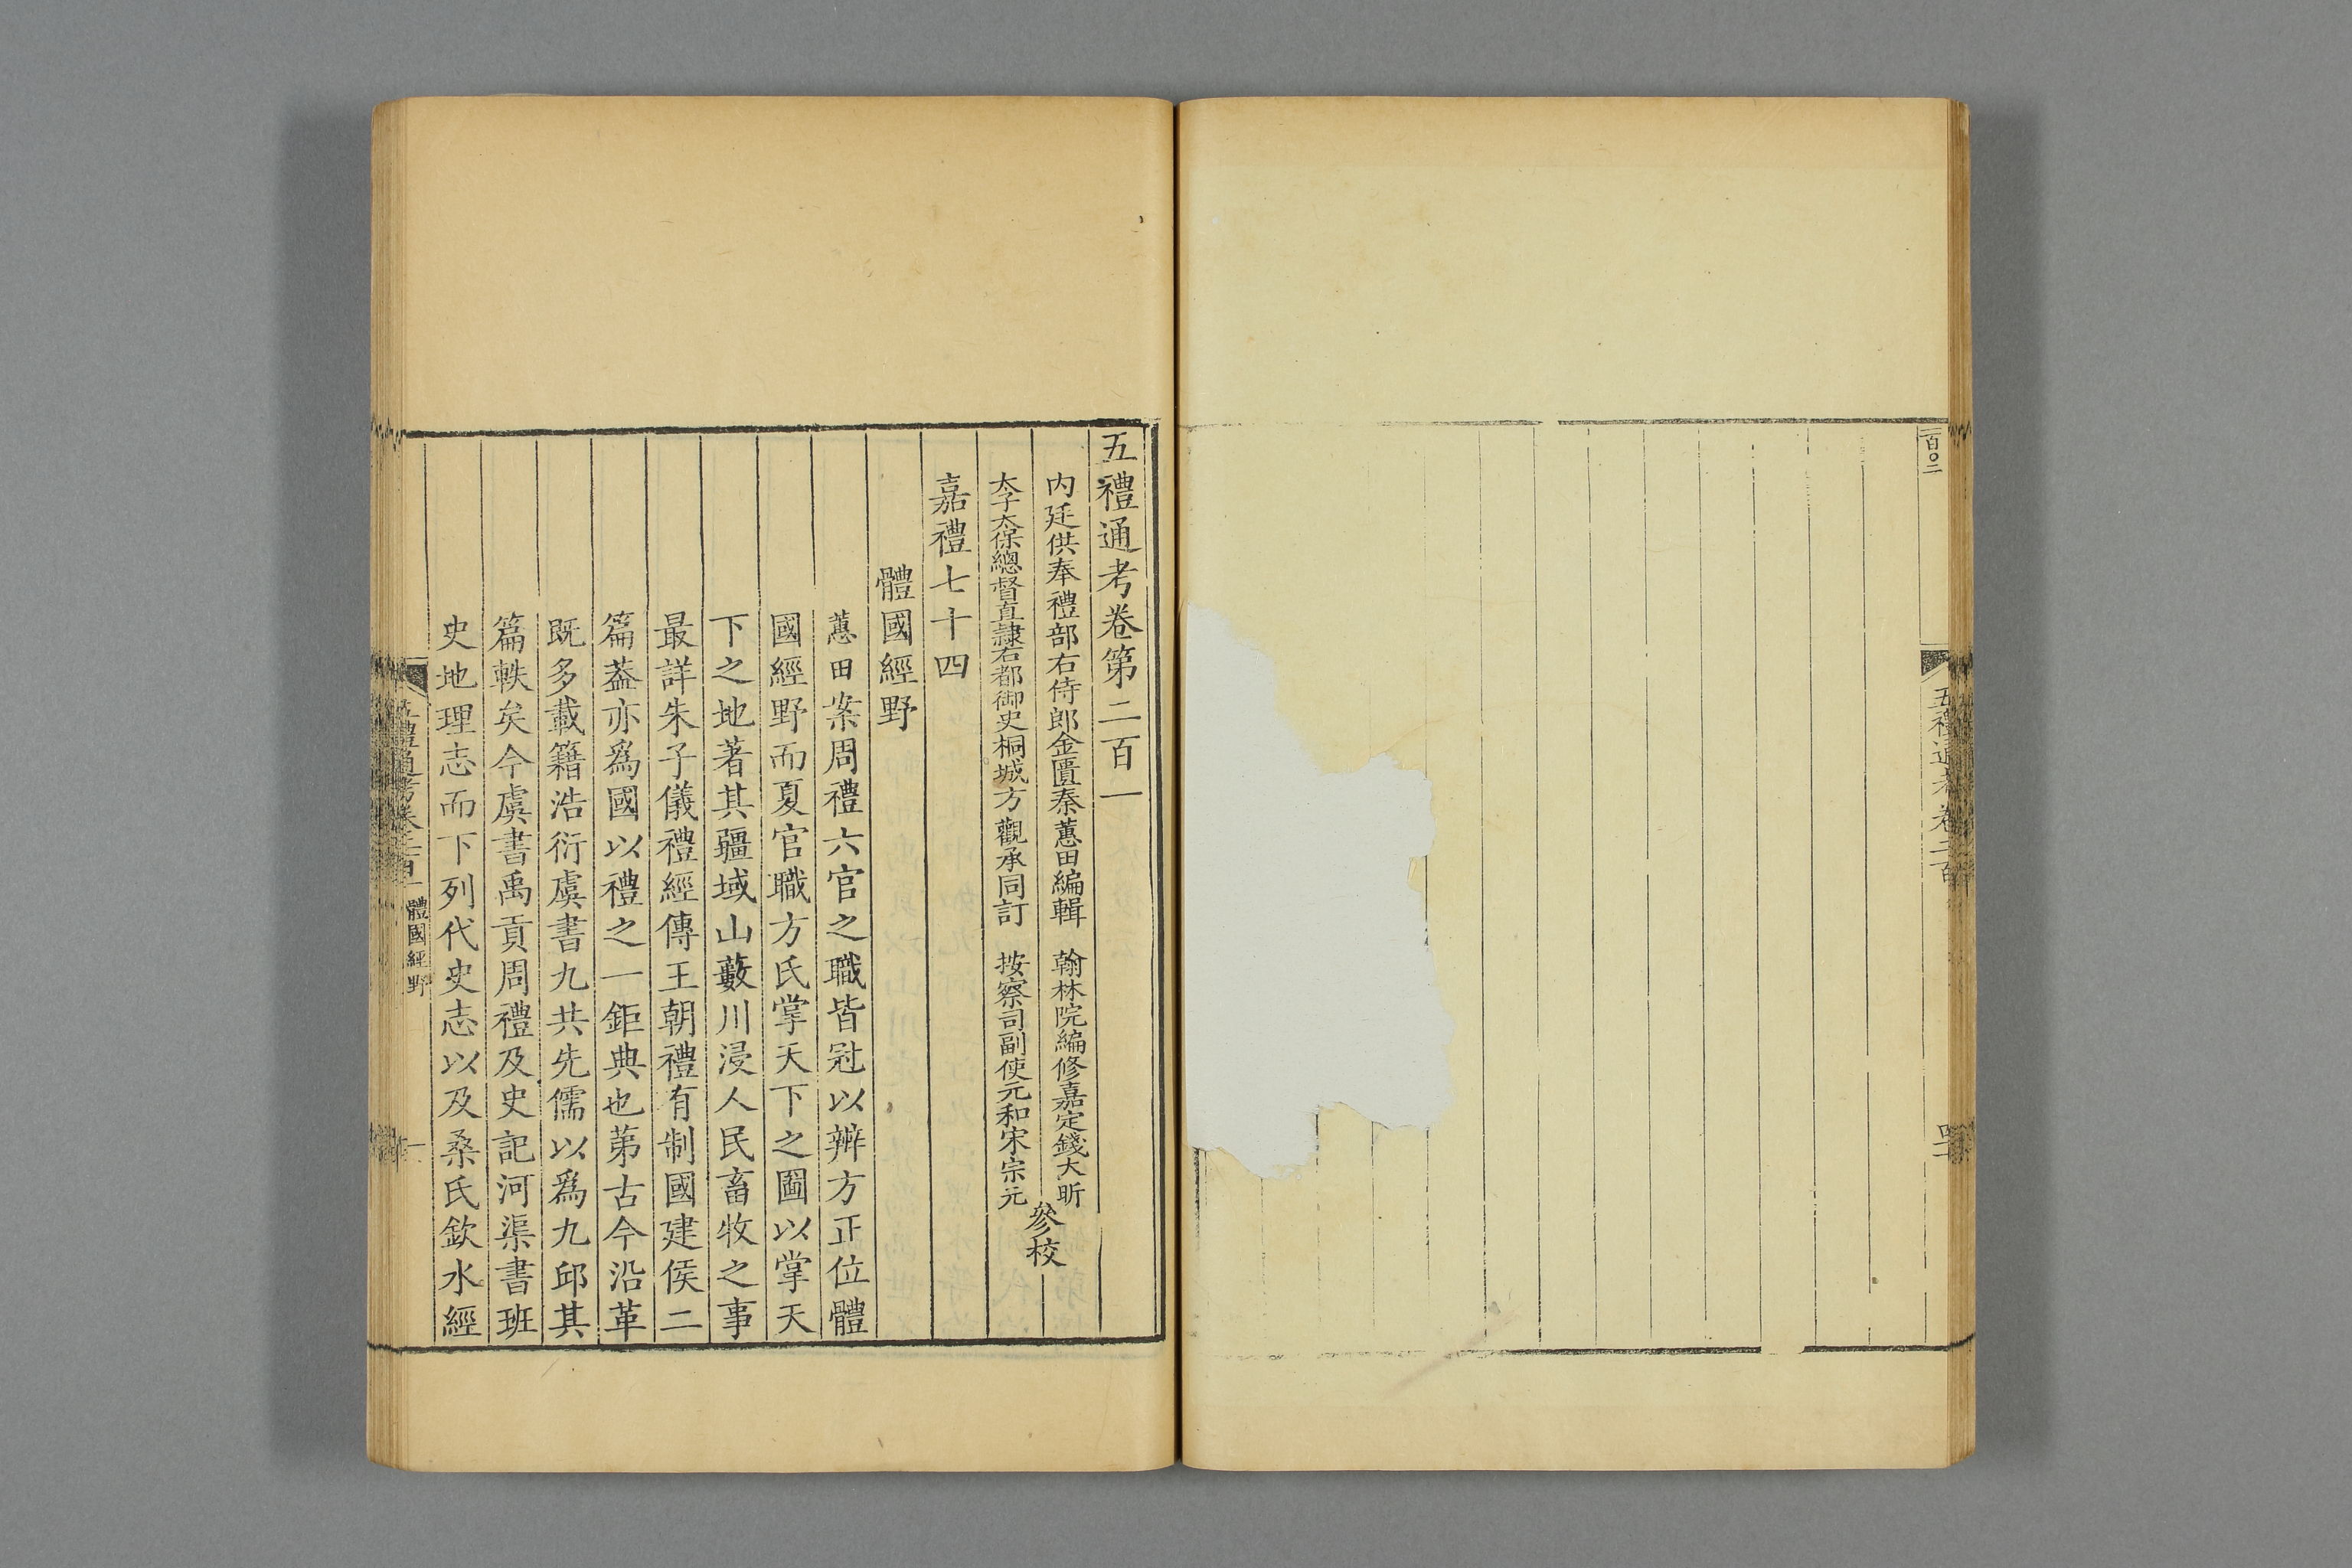 一百〇二
五禮通考卷二百
五禮通考卷第二百一
內廷供奉禮部右侍郎金匱秦蕙田編輯　翰林院編修嘉定錢大昕
太子太保總督直隸右都御史桐城方觀承同訂　按察司副使元和宋宗元
參校
嘉禮七十四
體國經野
蕙田案周禮六官之職皆冠以辨方正位體
國經野而夏官職方氏掌天下之圖以掌天
下之地著其疆域山藪川浸人民畜牧之事
最詳朱子儀禮經傳王朝禮有制國建侯二
篇葢亦爲國以禮之一鉅典也第古今沿革
既多載籍浩衍虞書九共先儒以爲九邱其
篇軼矣今虞書禹貢周禮及史記河渠書班
史地理志而下列代史志以及桑氏欽水經
五禮通考卷二百一 體國經野
一